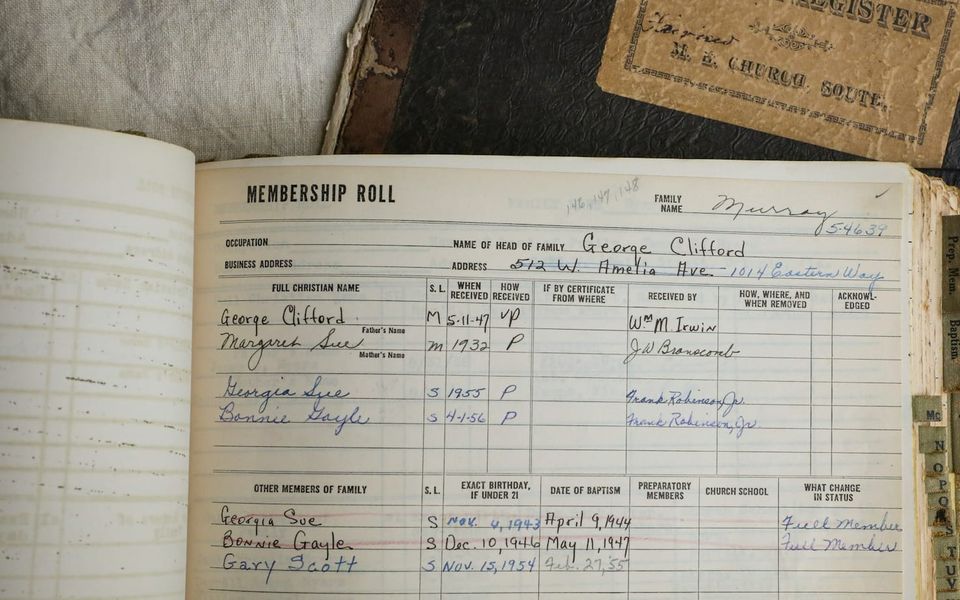 REGISTER
M. E. CHURCH, SOUTH.
MEMBERSHIP ROLL
146, 147, 148
FAMILY NAME Murray
54639
OCCUPATION NAME OF HEAD OF FAMILY George Clifford
BUSINESS ADDRESS ADDRESS 512 W. Amelia Ave. 1014 Eastern Way
FULL CHRISTIAN NAME S. L. WHEN RECEIVED HOW RECEIVED IF BY CERTIFICATE FROM WHERE RECEIVED BY HOW, WHERE, AND WHEN REMOVED ACKNOWL-EDGED
George Clifford M 5-11-47 VP Wm M Irwin
Father's Name
Margaret Sue m 1932 P J W Branscomb
Mother's Name
Georgia Sue S 1955 P Frank Robinson, Jr.
Bonnie Gayle S 4-1-56 P Frank Robinson, Jr.
OTHER MEMBERS OF FAMILY S. L. EXACT BIRTHDAY, IF UNDER 21 DATE OF BAPTISM PREPARATORY MEMBERS CHURCH SCHOOL WHAT CHANGE IN STATUS
Georgia Sue S Nov. 4, 1943 April 9, 1944 Full Member
Bonnie Gayle S Dec. 10, 1946 May 11, 1947 Full Member
Gary Scott S Nov. 15, 1954 Feb. 27, '55
Prep. Mem.
Baptism
Mc
N
O
P
Q
T
U
V